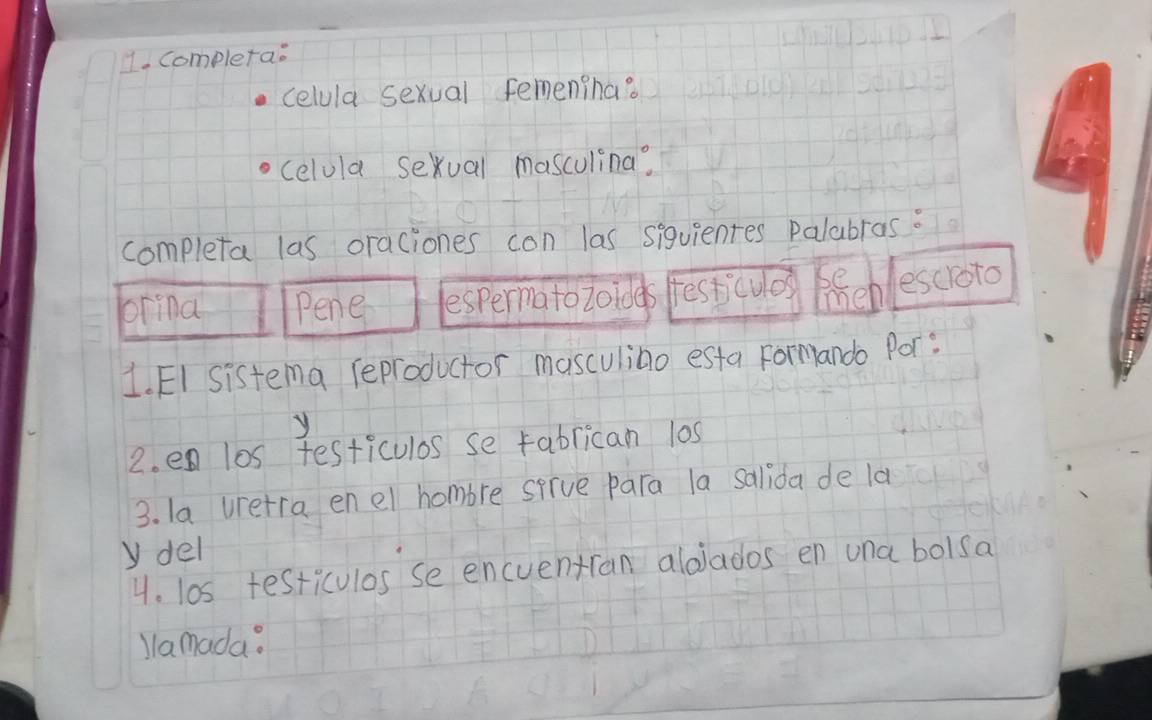 1. completa:
• celula sexual femenina:
• celula sexual masculina:
completa las oraciones con las siguientes palabras:
orina Pene espermatozoides testiculos semen escroto
1. El sistema reproductor masculino esta formando por:
y
2. en los testiculos se fabrican los
3. la uretra en el hombre sirve para la salida de la
y del
4. los testiculos se encuentran alojados en una bolsa
llamada: